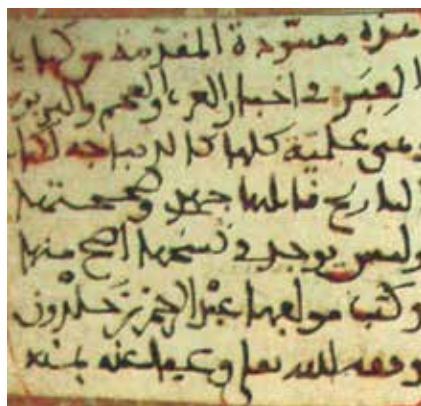 هذه مسودة المقدمة من كتاب
العبر في اخبار العرب والعجم والبربر
وهي علمية كلها كالديباجة لكتاب
التاريخ قابلتها جهدي وصححتها
وليس يوجد في نسخها اصح منها
وكتب مولفها عبد الرحمن بن خلدون
وفقه الله تعلى وعفا عنه بمنه